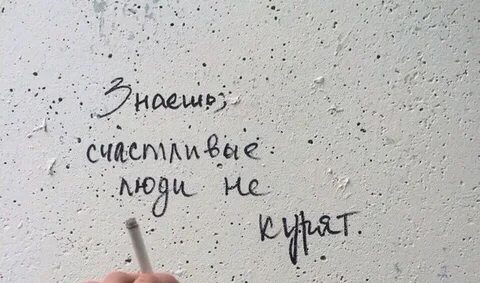 Знаешь,
счастливые
люди не
курят.